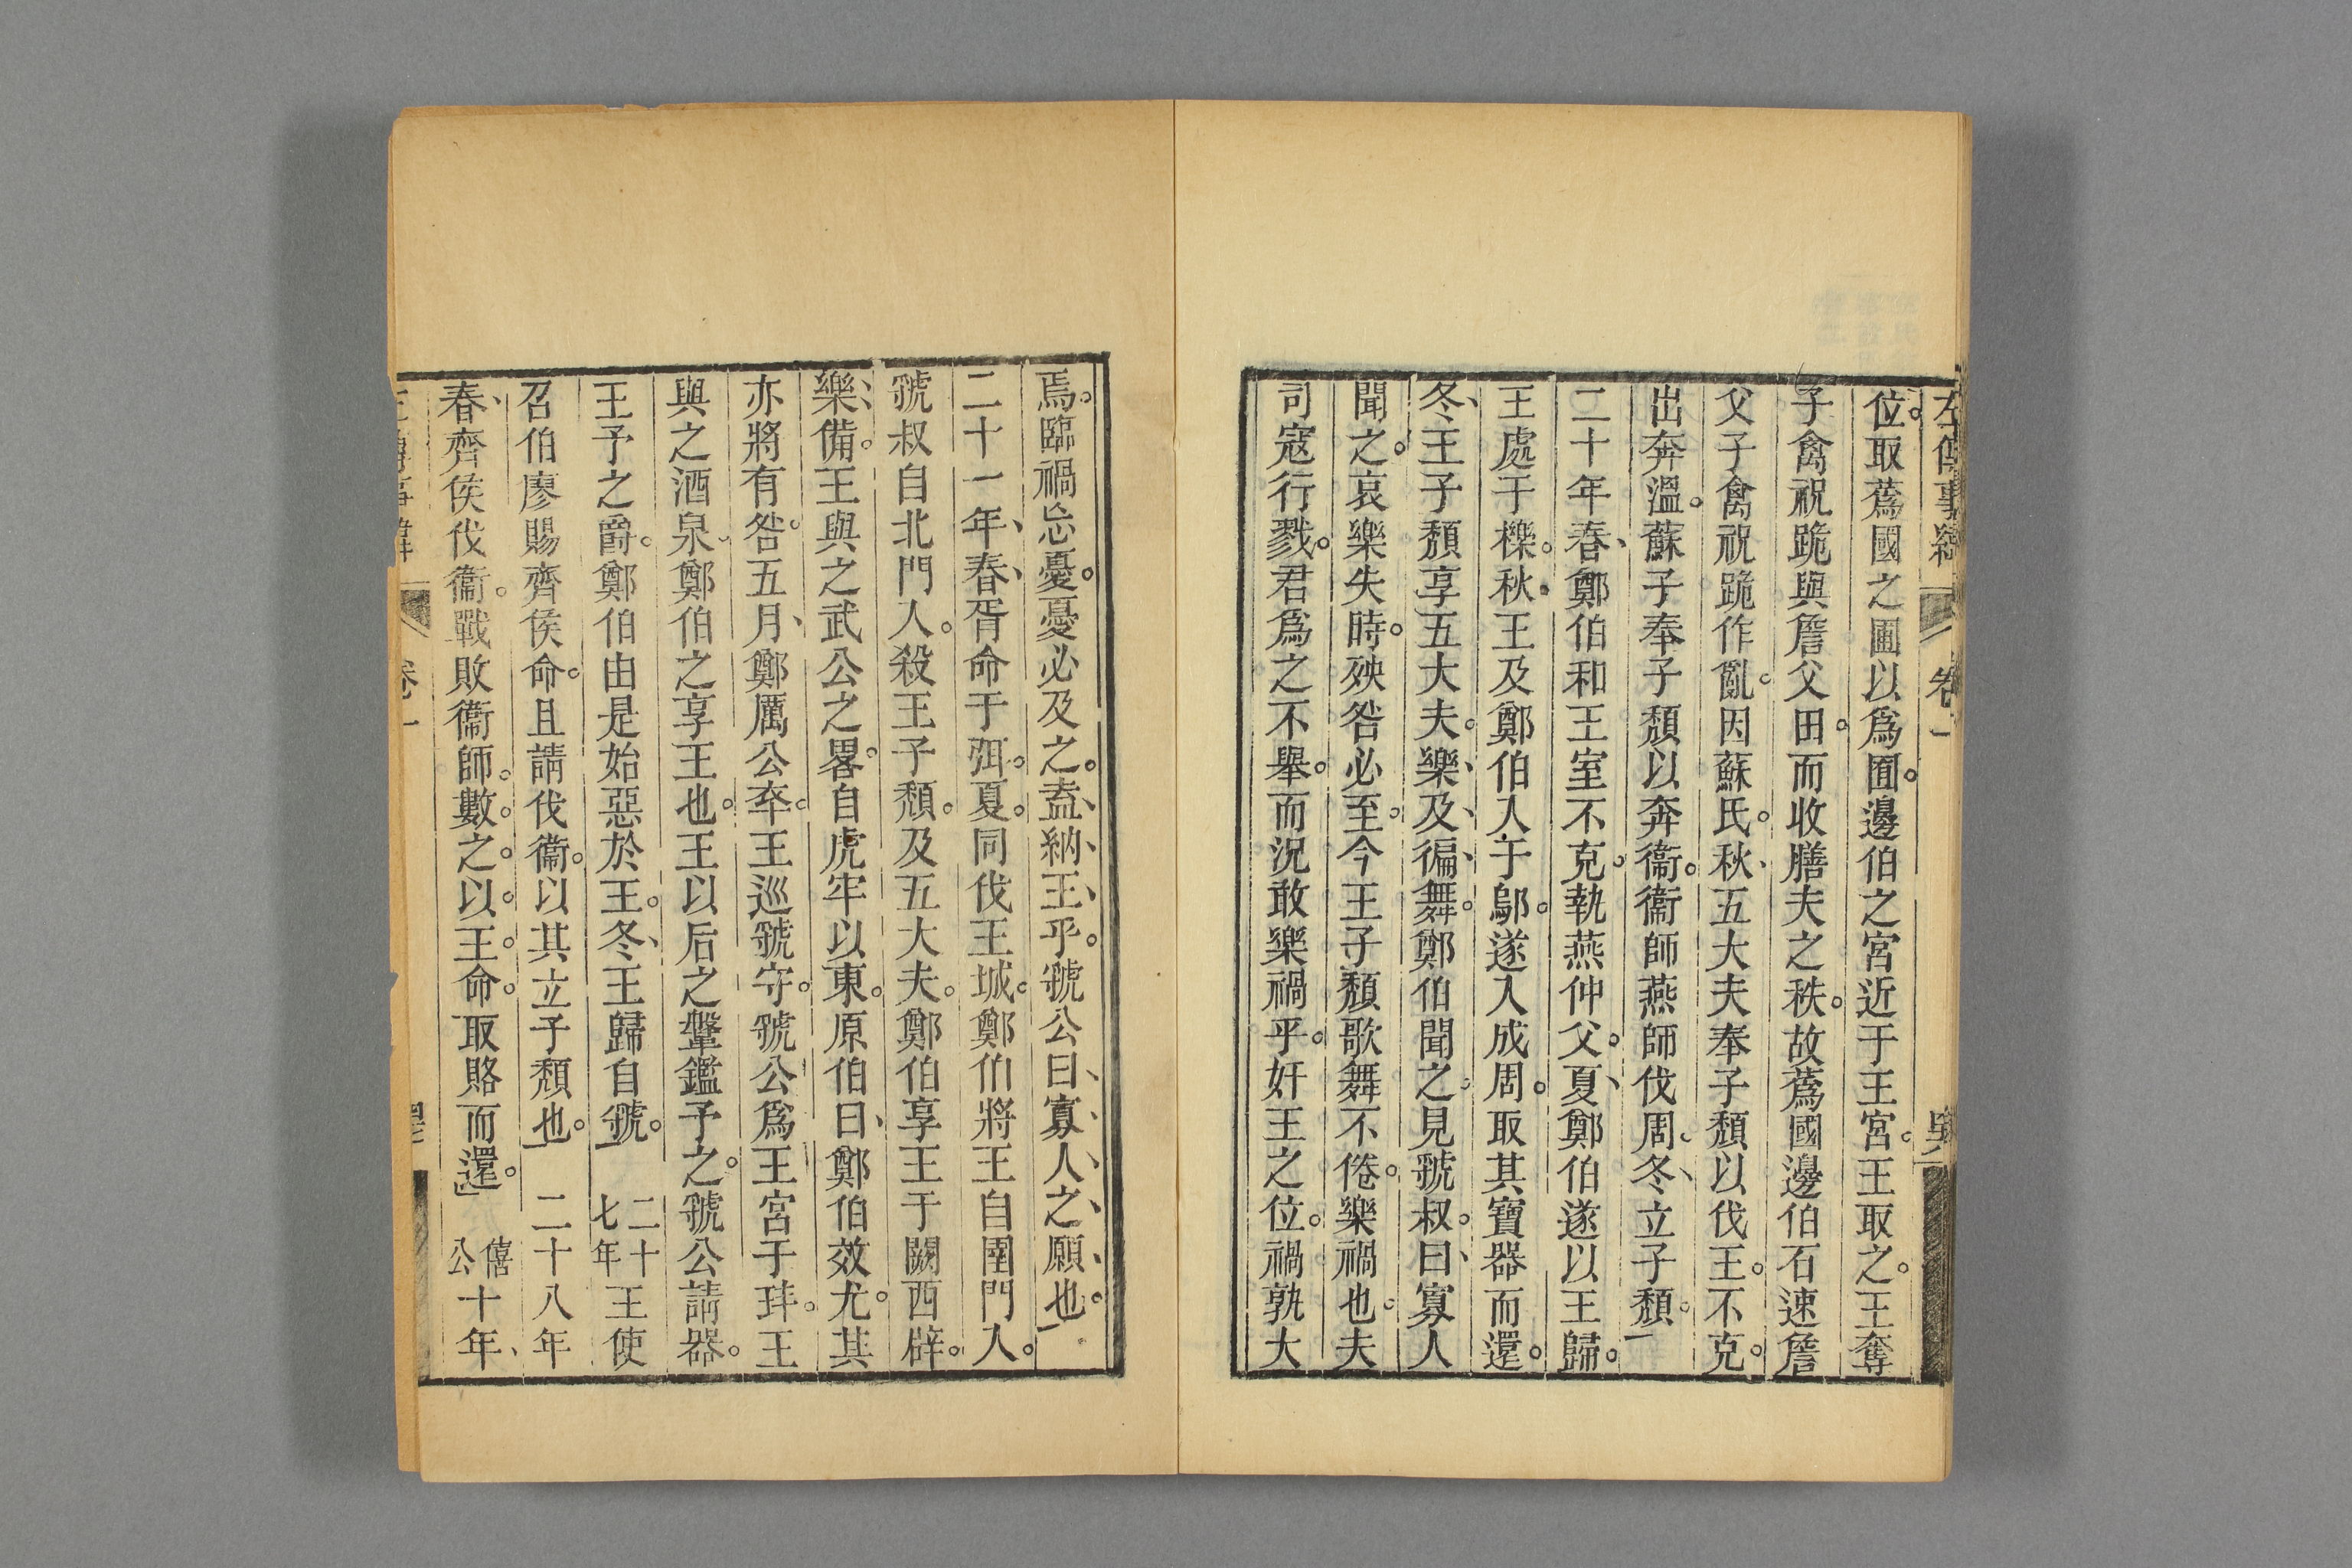 左傳事緯 卷一
位。取蒍國之圃以爲囿。邊伯之宮近于王宮。王取之。王奪
子禽祝跪與詹父田。而收膳夫之秩。故蒍國邊伯石速詹
父子禽祝跪作亂。因蘇氏。秋、五大夫奉子頹以伐王。不克。
出奔溫。蘇子奉子頹以奔衞。衞師燕師伐周。冬、立子頹。
二十年春、鄭伯和王室不克。執燕仲父。夏、鄭伯遂以王歸。
王處于櫟。秋、王及鄭伯入于鄔。遂入成周。取其寶器而還。
冬、王子頹享五大夫。樂、及、徧、舞。鄭伯聞之。見虢叔。曰、寡人
聞之。哀樂失時。殃咎必至。今王子頹歌舞不倦。樂禍也。夫
司寇行戮。君爲之不舉。而況敢樂禍乎。奸王之位。禍孰大
焉。臨禍忘憂。憂必及之。盍、納、王、乎。虢公曰、寡、人、之、願、也。
二十一年、春、胥命于弭。夏。同伐王城。鄭伯將王自圉門入。
虢叔自北門入。殺王子頹。及五大夫。鄭伯享王于闕西辟。
樂、備。王與之武公之畧。自虎牢以東。原伯曰、鄭伯效尤。其
亦將有咎。五月、鄭厲公卒。王巡虢守。虢公爲王宮于玤。王
與之酒泉。鄭伯之享王也。王以后之鞶鑑予之。虢公請器。
王予之爵。鄭伯由是始惡於王。冬、王歸自虢。 二十七年 王使
召伯廖賜齊侯命。且請伐衞。以其立子頹也。 二十八年
春、齊侯伐衞。戰敗衞師。數。之。以。王。命。取賂而還。」 僖公 十年、
卷一